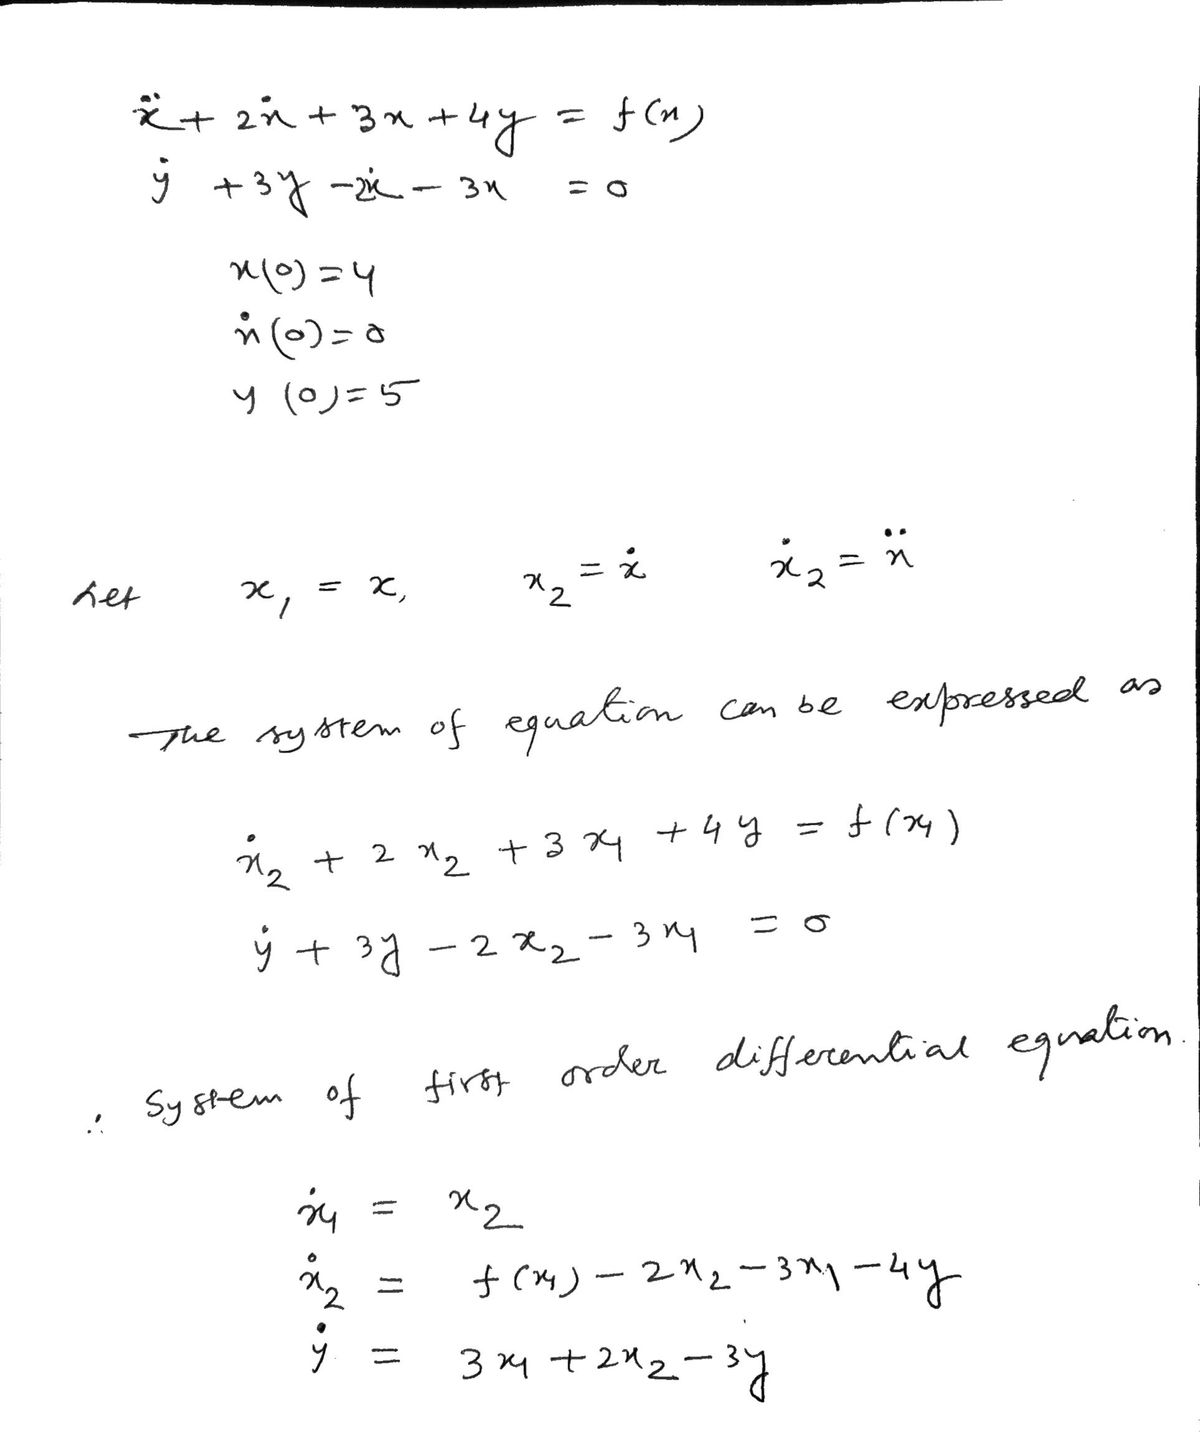 ẍ + 2ẋ + 3x + 4y = f(x)
ẏ + 3y - 2ẋ - 3x = 0
x(0) = 4
ẋ(0) = 0
y(0) = 5
Let x₁ = x, x₂ = ẋ ẋ₂ = ẍ
The system of equation can be expressed as
ẋ₂ + 2x₂ + 3x₁ + 4y = f(x₁)
ẏ + 3y - 2x₂ - 3x₁ = 0
∴ System of first order differential equation.
ẋ₁ = x₂
ẋ₂ = f(x₁) - 2x₂ - 3x₁ - 4y
ẏ = 3x₁ + 2x₂ - 3y